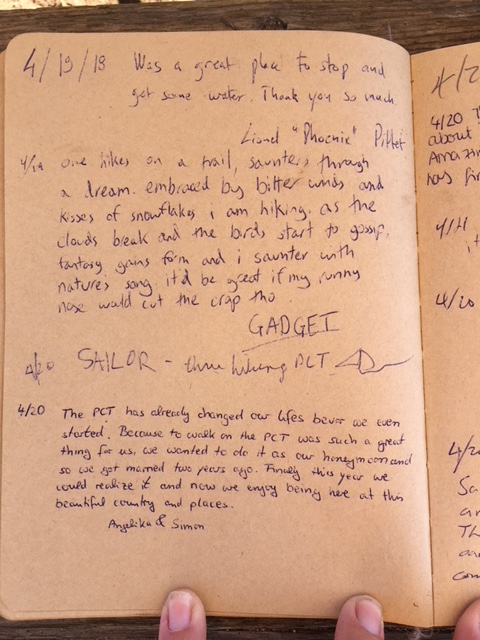 4/19/18 Was a great place to stop and
get some water. Thank you so much
Lionel "Phoenix" Pittet
4/19 one hikes on a trail, saunters through
a dream. embraced by bitter winds and
kisses of snowflakes i am hiking. as the
clouds break and the birds start to gossip,
fantasy gains form and i saunter with
natures song. it'd be great if my runny
nose would cut the crap tho.
GADGET
4/20 SAILOR - thru hiking PCT
4/20 The PCT has already changed our lifes bevor we even
started. Because to walk on the PCT was such a great
thing for us, we wanted to do it as our honeymoon and
so we got married two years ago. Finally this year we
could realize it and now we enjoy being here at this
beautiful country and places.
Angelika & Simon
4/20
about
Amazin
4/19
4/20
4/2
Sa
an
Th
com